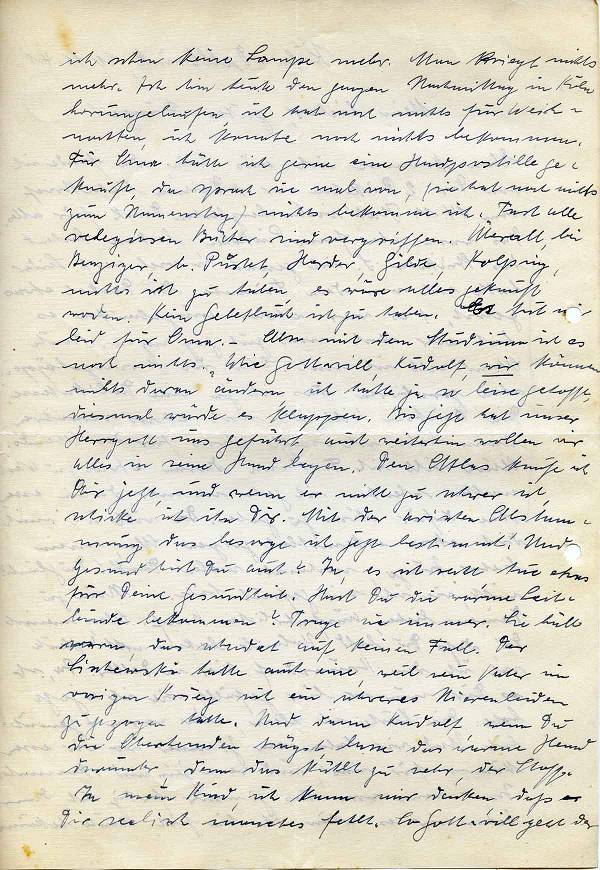 ich schon keine Lampe mehr. Man kriegt nichts
mehr. Ich bin heute den ganzen Nachmittag in Köln
herumgelaufen, ich hab noch nichts für Weih-
nachten, ich konnte noch nichts bekommen.
Für Oma hätte ich gerne eine Handpostille ge-
kauft, da sprach sie mal von, (sie hat noch nichts
zum Namenstag) nichts bekomme ich. Fast alle
religiösen Bücher sind vergriffen. Überall, bei
Benziger, b. Pustet, Herder, Gilde, Kolping,
nichts ist zu haben, es wäre alles gekauft
worden. Kein Gebetbuch ist zu haben. Es tut mir
leid für Oma. - Also mit dem Studium ist es
noch nichts. Wie Gott will, Rudolf, wir können
nichts daran ändern, ich hatte ja so leise gehofft,
diesmal würde es klappen. Bis jetzt hat unser
Herrgott uns geführt, auch weiterhin wollen wir
alles in seine Hand legen. Den Atlas kaufe ich
Dir jetzt, und wenn er nicht zu schwer ist,
schicke ich ihn Dir. Mit der arischen Abstam-
mung das besorge ich jetzt bestimmt. Und
gesund bist Du auch? Ja, es ist recht tue etwas
für Deine Gesundheit. Hast Du die warme Leib-
binde bekommen? Trage sie immer. Sie hält
warm, das schadet auf keinen Fall. Der
hatte auch eine, weil sein Vater im
vorigen Krieg sich ein schweres Nierenleiden
zugezogen hatte. Und dann Rudolf, wenn Du
die Oberhemden trägst, lasse das warme Hemd
darunter, denn das kühlt zu sehr, der Stoff.
Ja mein Kind, ich kann mir denken, daß es
Dir seelisch manches fehlt. So Gott will geht der